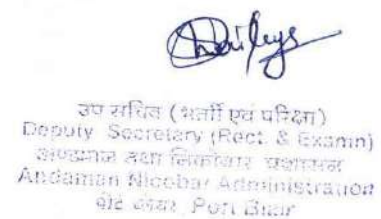 उप सचिव (भर्ती एवं परिक्षा)
Deputy Secretary (Rect. & Examn)
अण्डमान तथा निकोबार प्रशासन
Andaman Nicobar Administration
पोर्ट ब्लेयर Port Blair